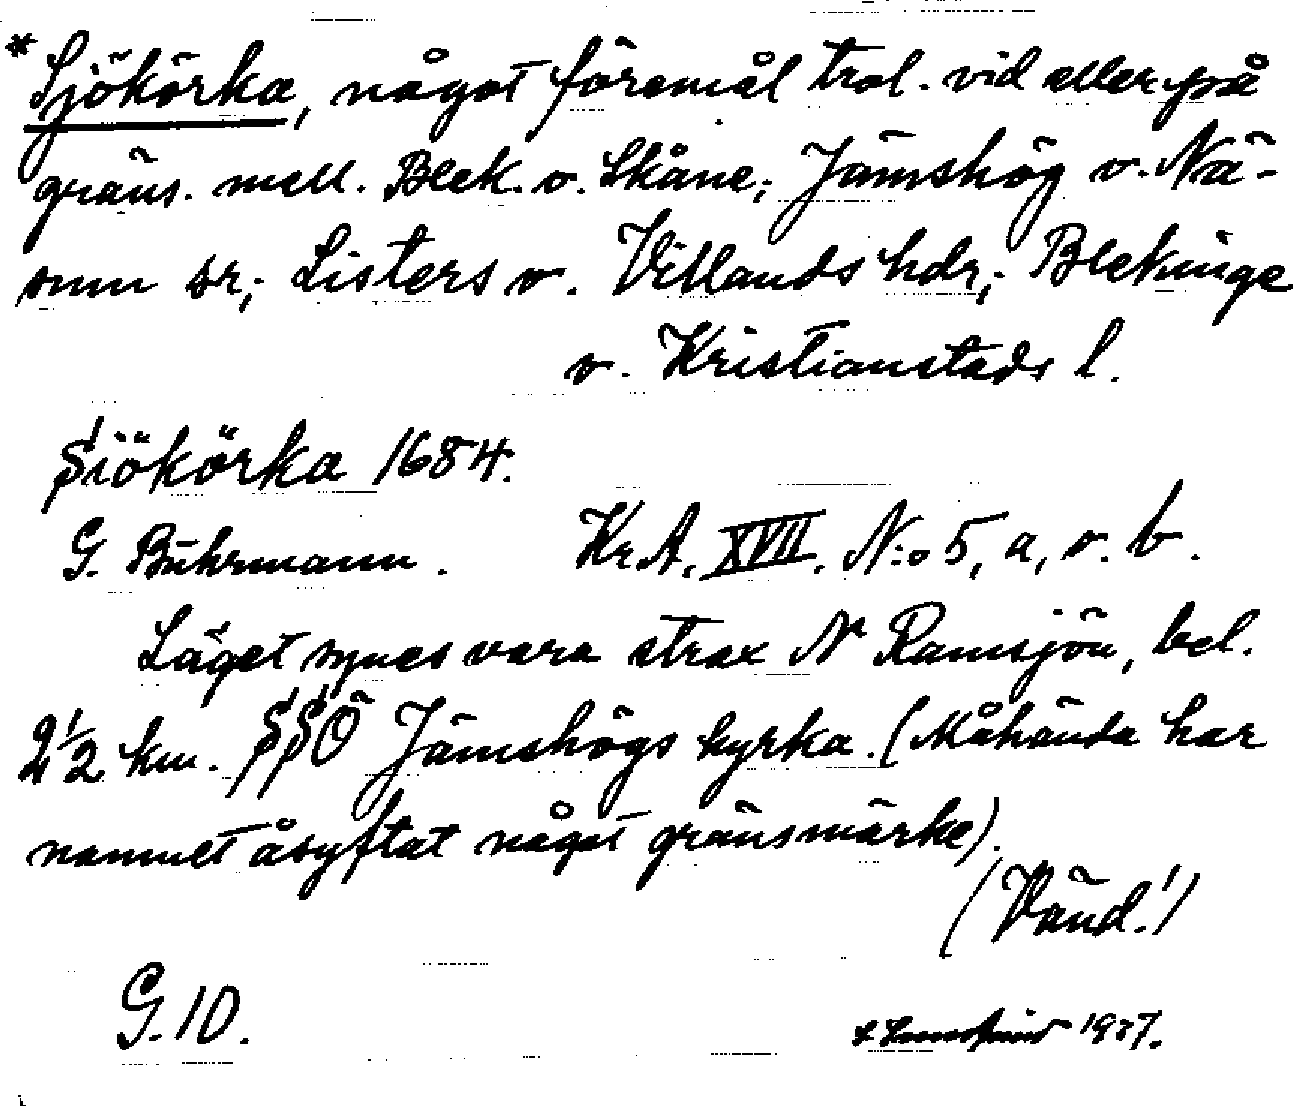 *Sjökörka, något föremål trol. vid eller på
gräns. mell. Blek. o. Skåne; Jämshög o. Nä-
sum sr; Listers o. Villands hdr; Blekinge
o. Kristianstads l.
Siökörka 1684.
G. Buhrmann. Kr.A. XVII. N:o 5, a, o. b.
Läget synes vara strax N Ramsjön, bel.
2½ km. SSÖ Jämshögs kyrka. (Måhända har
namnet åsyftat något gränsmärke).
(Vänd!)
G. 10.
1927.